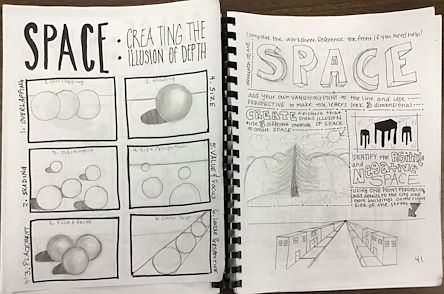 SPACE:
CREATING THE
ILLUSION OF DEPTH
1. OVERLAPPING
2. SHADING
3. PLACEMENT
4. SIZE
5. VALUE & FOCUS
6. LINEAR PERSPECTIVE
1. Overlapping
2. Shading
3. Placement
4. Size/proportion
5. Value & Focus
Complete the worksheet. Reference the front if you need help!
elements of art:
SPACE
add your own VANISHING POINT to the line and use
PERSPECTIVE to make the letters look 3 dimensional
CREATE a picture that
shows ILLUSION
use 3 different methods of SPACE
to create SPACE
IDENTIFY the POSITIVE
and NEGATIVE
SPACE
USING ONE POINT PERSPECTIVE
add details to the city and
more buildings on the right
side of the street
41